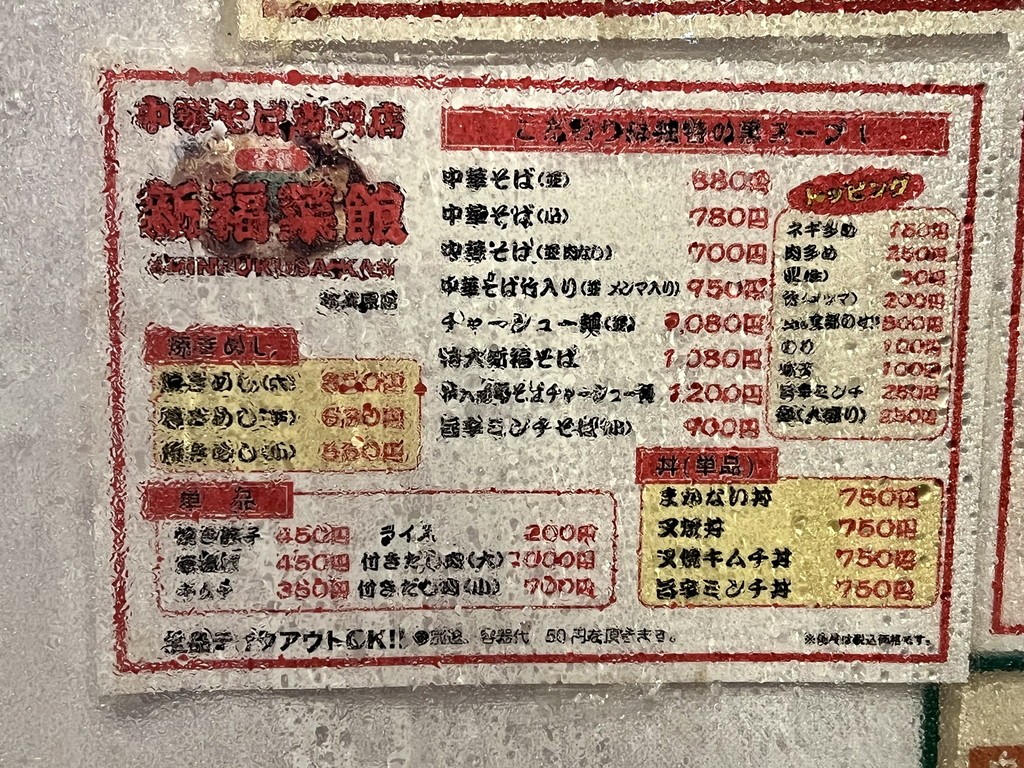 中華そば専門店
京都
新福菜館
SHINPUKUSAIKAN
秋葉原店
こだわりは独特の黒スープ!
中華そば(並) 880円
中華そば(小) 780円
中華そば(並 肉なし) 700円
中華そば竹入り(並 メンマ入り) 950円
チャーシュー麺(並) 1,080円
特大新福そば 1,080円
特大新福そばチャーシュー麺 1,200円
旨辛ミンチそば 900円
トッピング
ネギ多め 150円
肉多め 250円
50円
竹(メンマ) 200円
500円
のり 100円
100円
旨辛ミンチ 250円
麺(大盛り) 250円
焼きめし
焼きめし(大) 850円
焼きめし(中) 650円
焼きめし(小) 550円
単品
焼き餃子 450円 ライス 200円
450円 付きだし肉(大) 1000円
キムチ 350円 付きだし肉(小) 700円
丼(単品)
まかない丼 750円
叉焼丼 750円
叉焼キムチ丼 750円
旨辛ミンチ丼 750円
テイクアウトOK!! ●別途、容器代 50円を頂きます。
※価格は税込価格です。